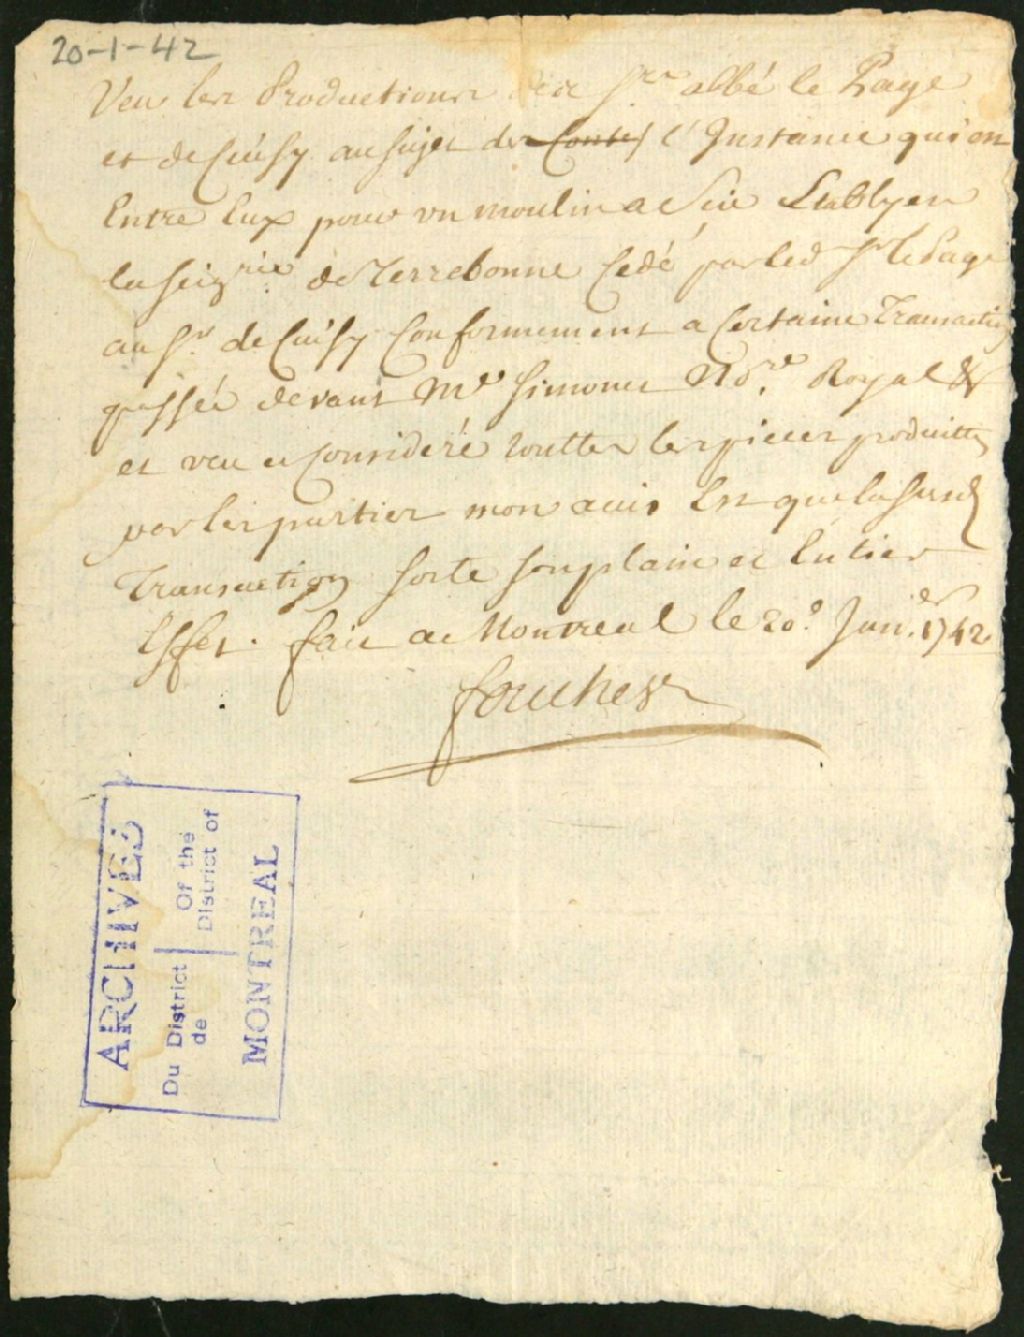 20-1-42
Veu les Productions des Srs abbé le Page
et de Cuisy au sujet des Contes l'Instance qui on
Entre Eux pour un moulin a Sie Etablyen
la seigrie de Terrebonne Cedé par led Sr le Page
au Sr de Cuisy Conformement a Certaine Transaction
passée devant Me Simonet Nore Royal &
et veu et Consideré touttes les pieces produittes
par les parties mon avis Est que la susd
Transaction sorte son plain et Entier
Effet. fait a Montreal le 20e Janer 1742
foucher
ARCHIVES
Du District de
Of the District of
MONTREAL